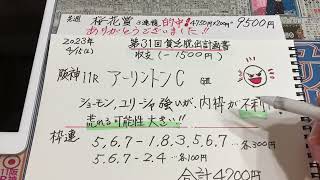 先週 桜花賞 3連複 的中 4750円×200円 9500円
ありがとうございました!!
2023年 第31回貧乏脱出計画書
4/15(土) 収支(-1500円)
阪神11R アーリントンC GⅢ
ショーモン、ユリーシャ強いが、内枠が不利
荒れる可能性大きい!!
枠連
5,6,7-1,8,3,5,6,7…各300円
5,6,7-2,4…各100円
合計4200円